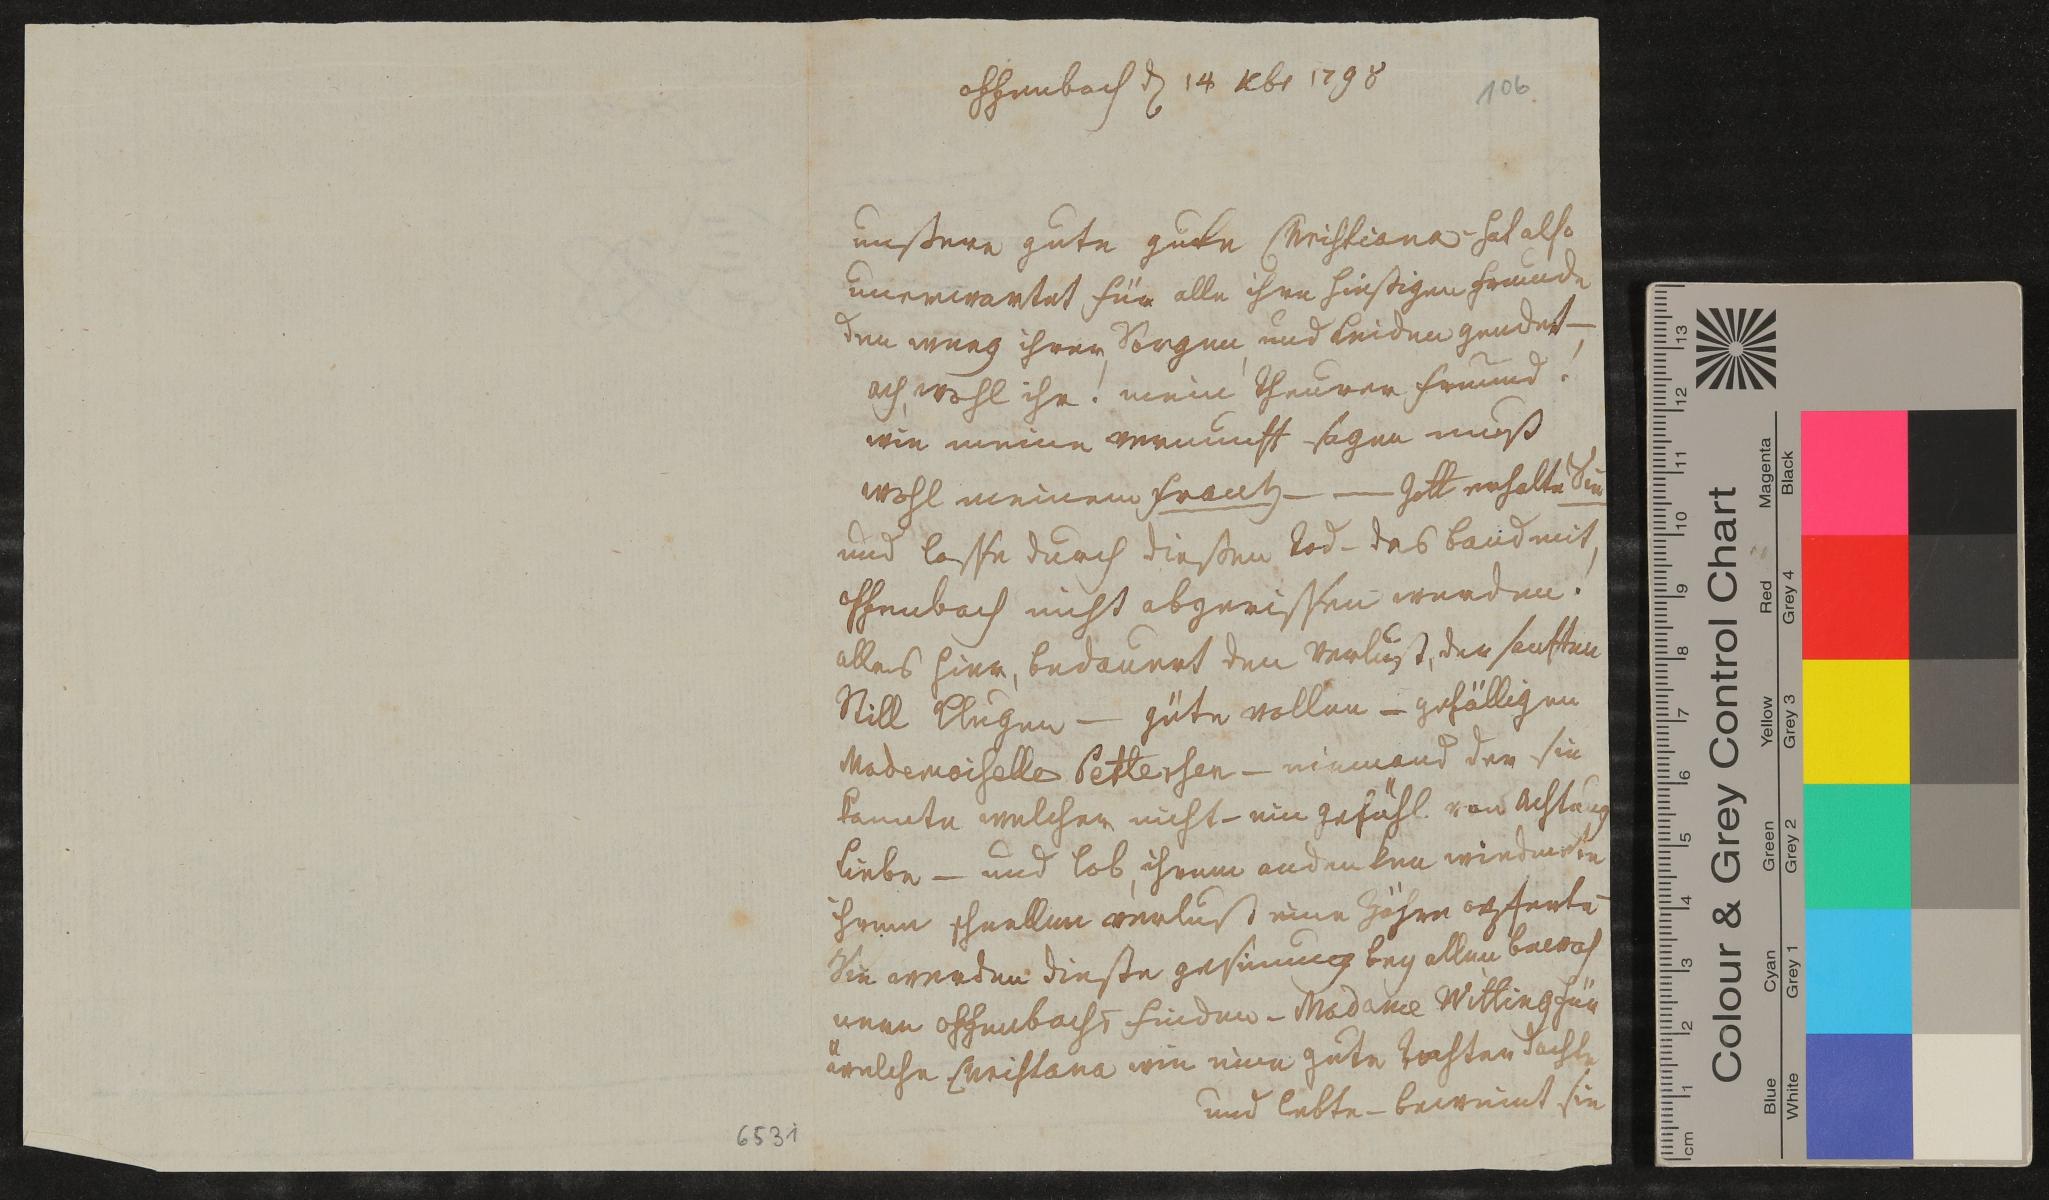 offenbach d 14 xbr 1798
106
unßere gute gute Christiana - hat also
unerwartet für alle ihre hießigen Freunde
den weeg ihrer Sorgen, und Leiden geendet —
ach, wohl ihr! mein theurer Freund!
wie meine vernunft sagen muß
wohl meinem Frantz — — Gott erhalte Sie
und lasse durch dießen Tod - das band mit,
offenbach nicht abgerissen werden!
alles hier, bedauert den Verlust, der sanften
Still Klugen — güte vollen — gefälligen
Mademoiselle Pettersen — niemand der sie
kannte welcher nicht - ein gefühl von Achtung
Liebe — und lob, ihrem andenken wiedmete
ihrem schnellen verlust eine Zähre opferte -
Sie werden dieße gesinnung bey allen bewoh
nern offenbachs finden - Madame Witting für
welche Christana wie eine gute Tochter dachte
und lebte - beweint sie
6531
Colour & Grey Control Chart
Blue Cyan Green Yellow Red Magenta
White Grey 1 Grey 2 Grey 3 Grey 4 Black
cm 1 2 3 4 5 6 7 8 9 10 11 12 13